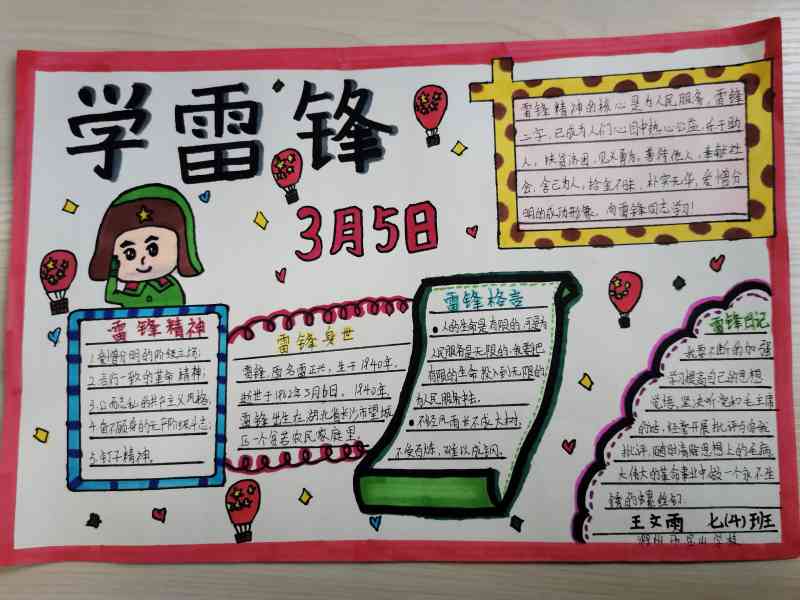 学雷锋
3月5日
雷锋精神的核心是为人民服务，雷锋
二字，已成为人们心目中热心公益，乐于助
人，扶贫济困，见义勇为，善待他人，奉献社
会，舍己为人，拾金不昧，朴实无华，爱憎分
明的成功形象。向雷锋同志学习！
雷锋精神
1.爱憎分明的阶级立场；
2.言行一致的革命精神；
3.公而忘私的共产主义风格；
4.奋不顾身的无产阶级斗志；
5.钉子精神。
雷锋身世
雷锋原名雷正兴，生于1940年，
逝世于1962年3月6日，1940年，
雷锋出生在湖北省长沙市望城
区一个贫苦农民家庭里。
雷锋格言
●人的生命是有限的，可是为
人民服务是无限的，我要把
有限的生命投入到无限的
为人民服务中去。
●不经风雨长不成大树，
不受百炼，难以成钢。
雷锋日记
我要不断的加强
学习提高自己的思想
觉悟，坚决听党和毛主席
的话，经常开展批评与自我
批评，随时清除思想上的毛病，
在伟大的革命事业中做一个永不生
锈的螺丝钉。
王文雨 七(4)班